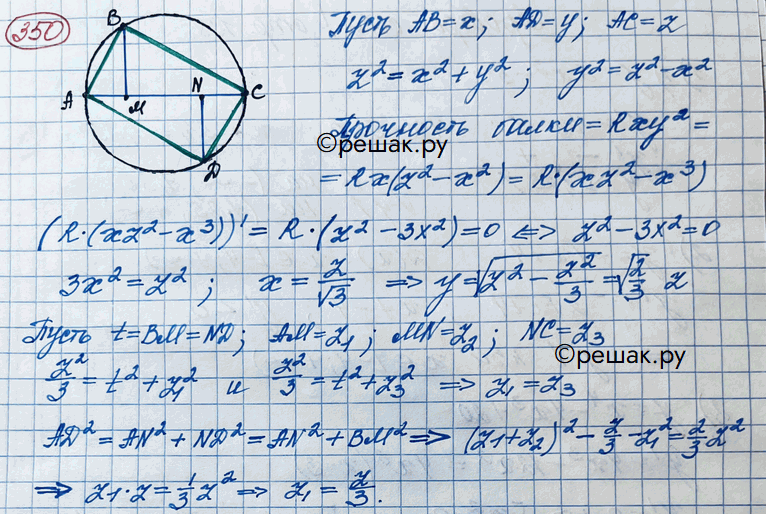 350
B
A M N C
D
Пусть AB = x; AD = y; AC = z
z² = x² + y²; y² = z² - x²
Прочность балки = Rxy² =
©решак.ру
= Rx(z² - x²) = R·(xz² - x³)
(R·(xz² - x³))' = R·(z² - 3x²) = 0 <=> z² - 3x² = 0
3x² = z²; x = z/√3 => y = √(z² - z²/3) = √(2/3) z
Пусть t = BM = ND; AM = z₁; MN = z₂; NC = z₃
©решак.ру
z²/3 = t² + z₁² и z²/3 = t² + z₃² => z₁ = z₃
AD² = AN² + ND² = AN² + BM² => (z₁ + z₂)² - z/3 - z₁² = 2/3 z²
=> z₁·z = 1/3 z² => z₁ = z/3.